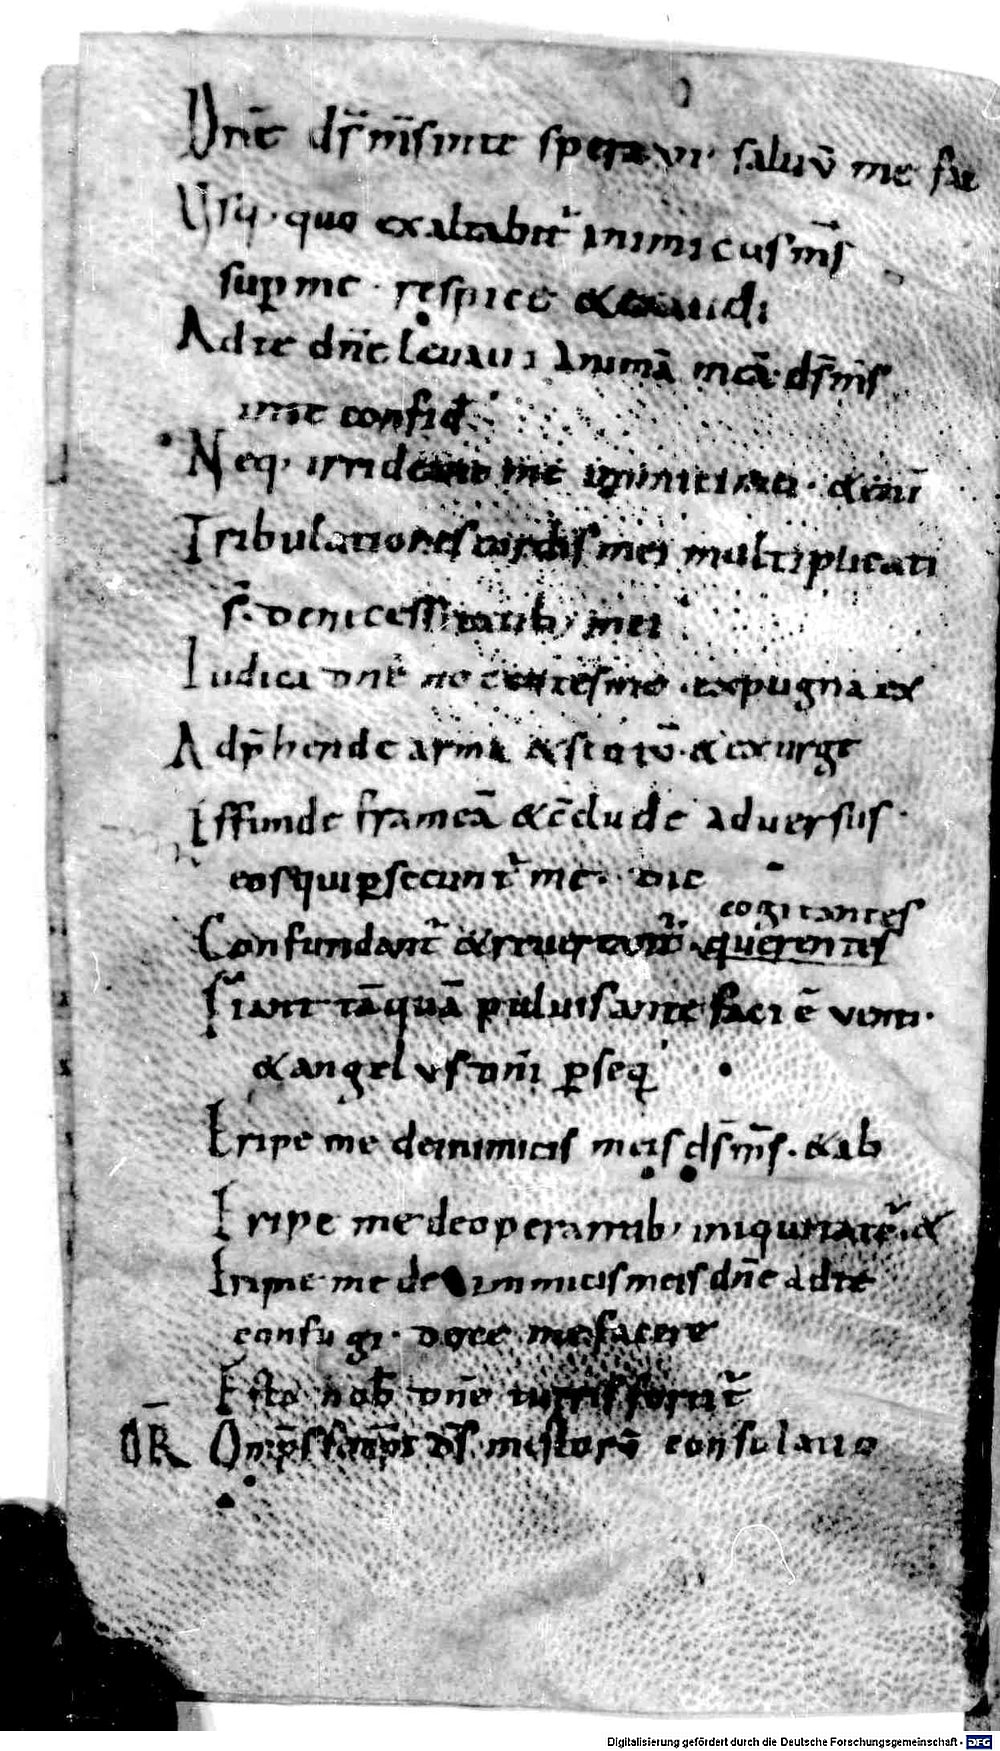 Dn̄e ds̄ ms̄ inte speravi saluū me fac
Usq, quo exaltabit̄ inimicus ms̄
sup me · respice &exaudi
Ad te dn̄e levavi animā meā ds̄ ms̄
inte confid
Neq, irrideant me inimici mei · &enī
Tribulationes cordis mei multiplicati
s̄ · denicessitatib, mei
Iudica dn̄e nocentes me · expugna ex
Adp̄hende arma &scutū · & exurge
Effunde frameā &c̄clude adversus ·
eos qui persecunt̄ me · dic
cogitantes
Confundant̄ &revereant̄ · querentes
Fiant tāquā pulvis ante faciē venti ·
& angelus dn̄i perseq
Eripe me deinimicis meis ds̄ ms̄ · &ab
Eripe me deoperantib, iniquitatē · &
Eripe me de inimicis meis dn̄e adte
confugi · doce me facere
Esto nob dn̄e turris fortit̄
OR̄ Omps̄ ds̄ mestorū consolatio
Digitalisierung gefördert durch die Deutsche Forschungsgemeinschaft - DFG